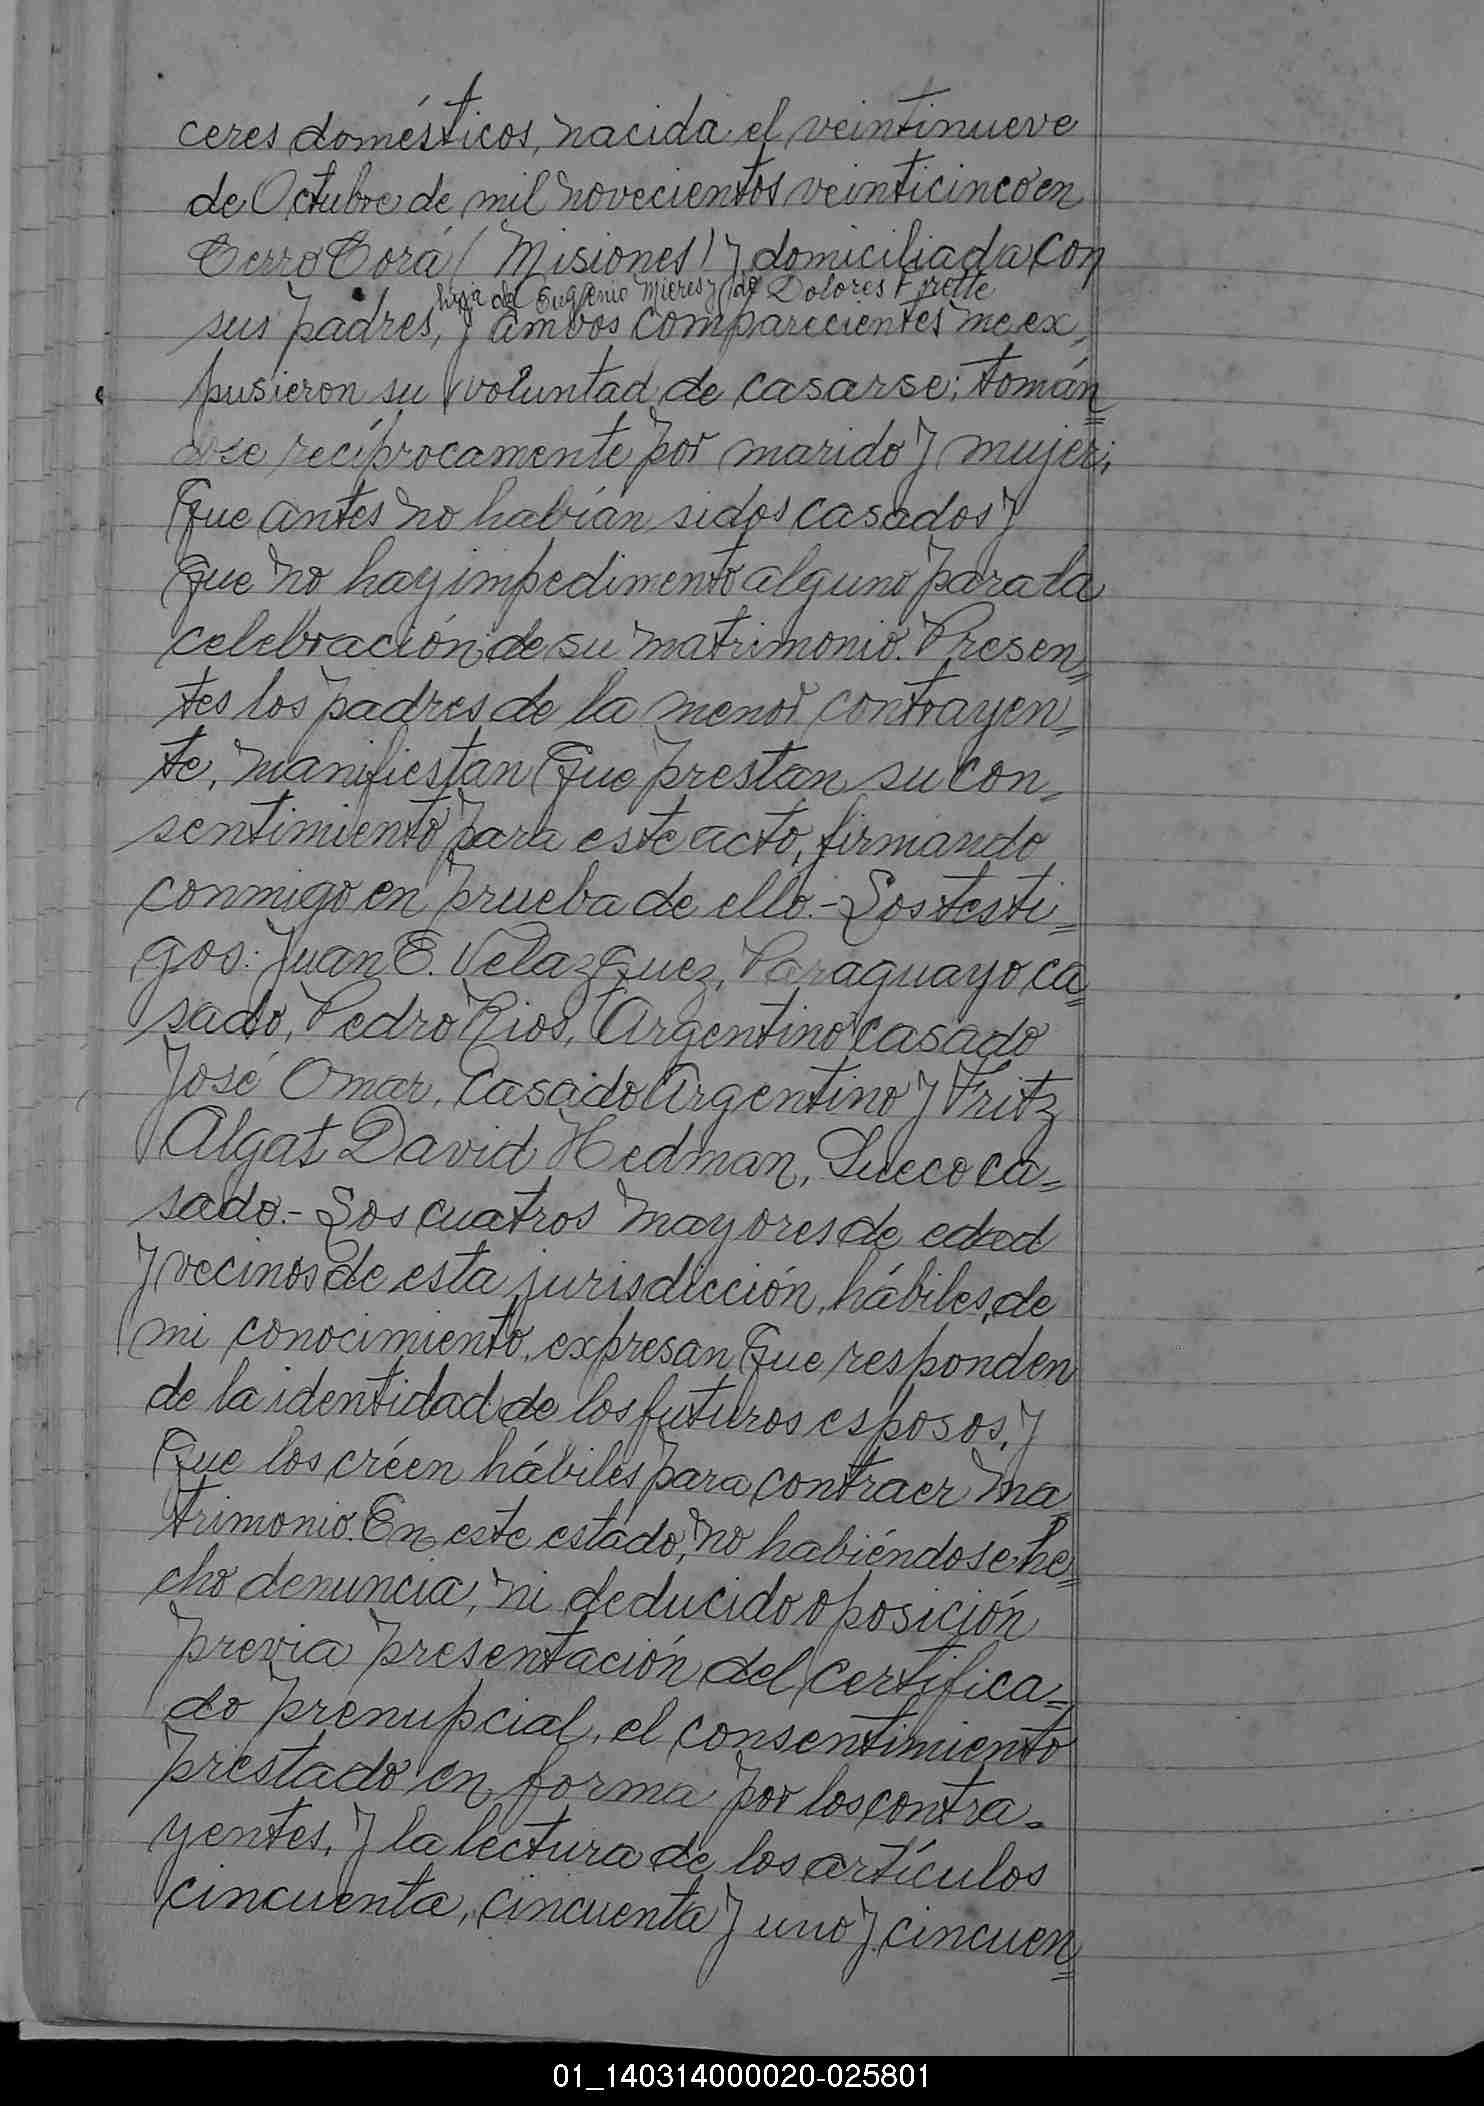 ceres domésticos, nacida el veintinueve
de Octubre de mil novecientos veinticinco en
Cerro Corá (Misiones) y domiciliada con
hija de Eugenio Mieres y de Dolores Frette
sus padres, y ambos comparecientes me ex=
pusieron su voluntad de casarse; tomán=
dose recíprocamente por marido y mujer;
que antes no habían sidos casados y
que no hay impedimento alguno para la
celebración de su matrimonio. Presen=
tes los padres de la menor contrayen=
te, manifiestan que prestan su con=
sentimiento para este acto, firmando
conmigo en prueba de ello.- Los testi=
gos: Juan E. Velazquez, Paraguayo ca=
sado, Pedro Rios, Argentino casado
José Omar, Casado Argentino y Fritz
Algat David Hedman, Sueco ca=
sado.- Los cuatros mayores de edad
y vecinos de esta jurisdicción, hábiles, de
mi conocimiento, expresan que responden
de la identidad de los futuros esposos, y
que los créen hábiles para contraer ma=
trimonio. En este estado, no habiéndose he=
cho denuncia, ni deducido oposición
previa presentación del certifica=
do prenupcial, el consentimiento
prestado en forma por los contra=
yentes, y la lectura de los artículos
cincuenta, cincuenta y uno y cincuen=
01_140314000020-025801